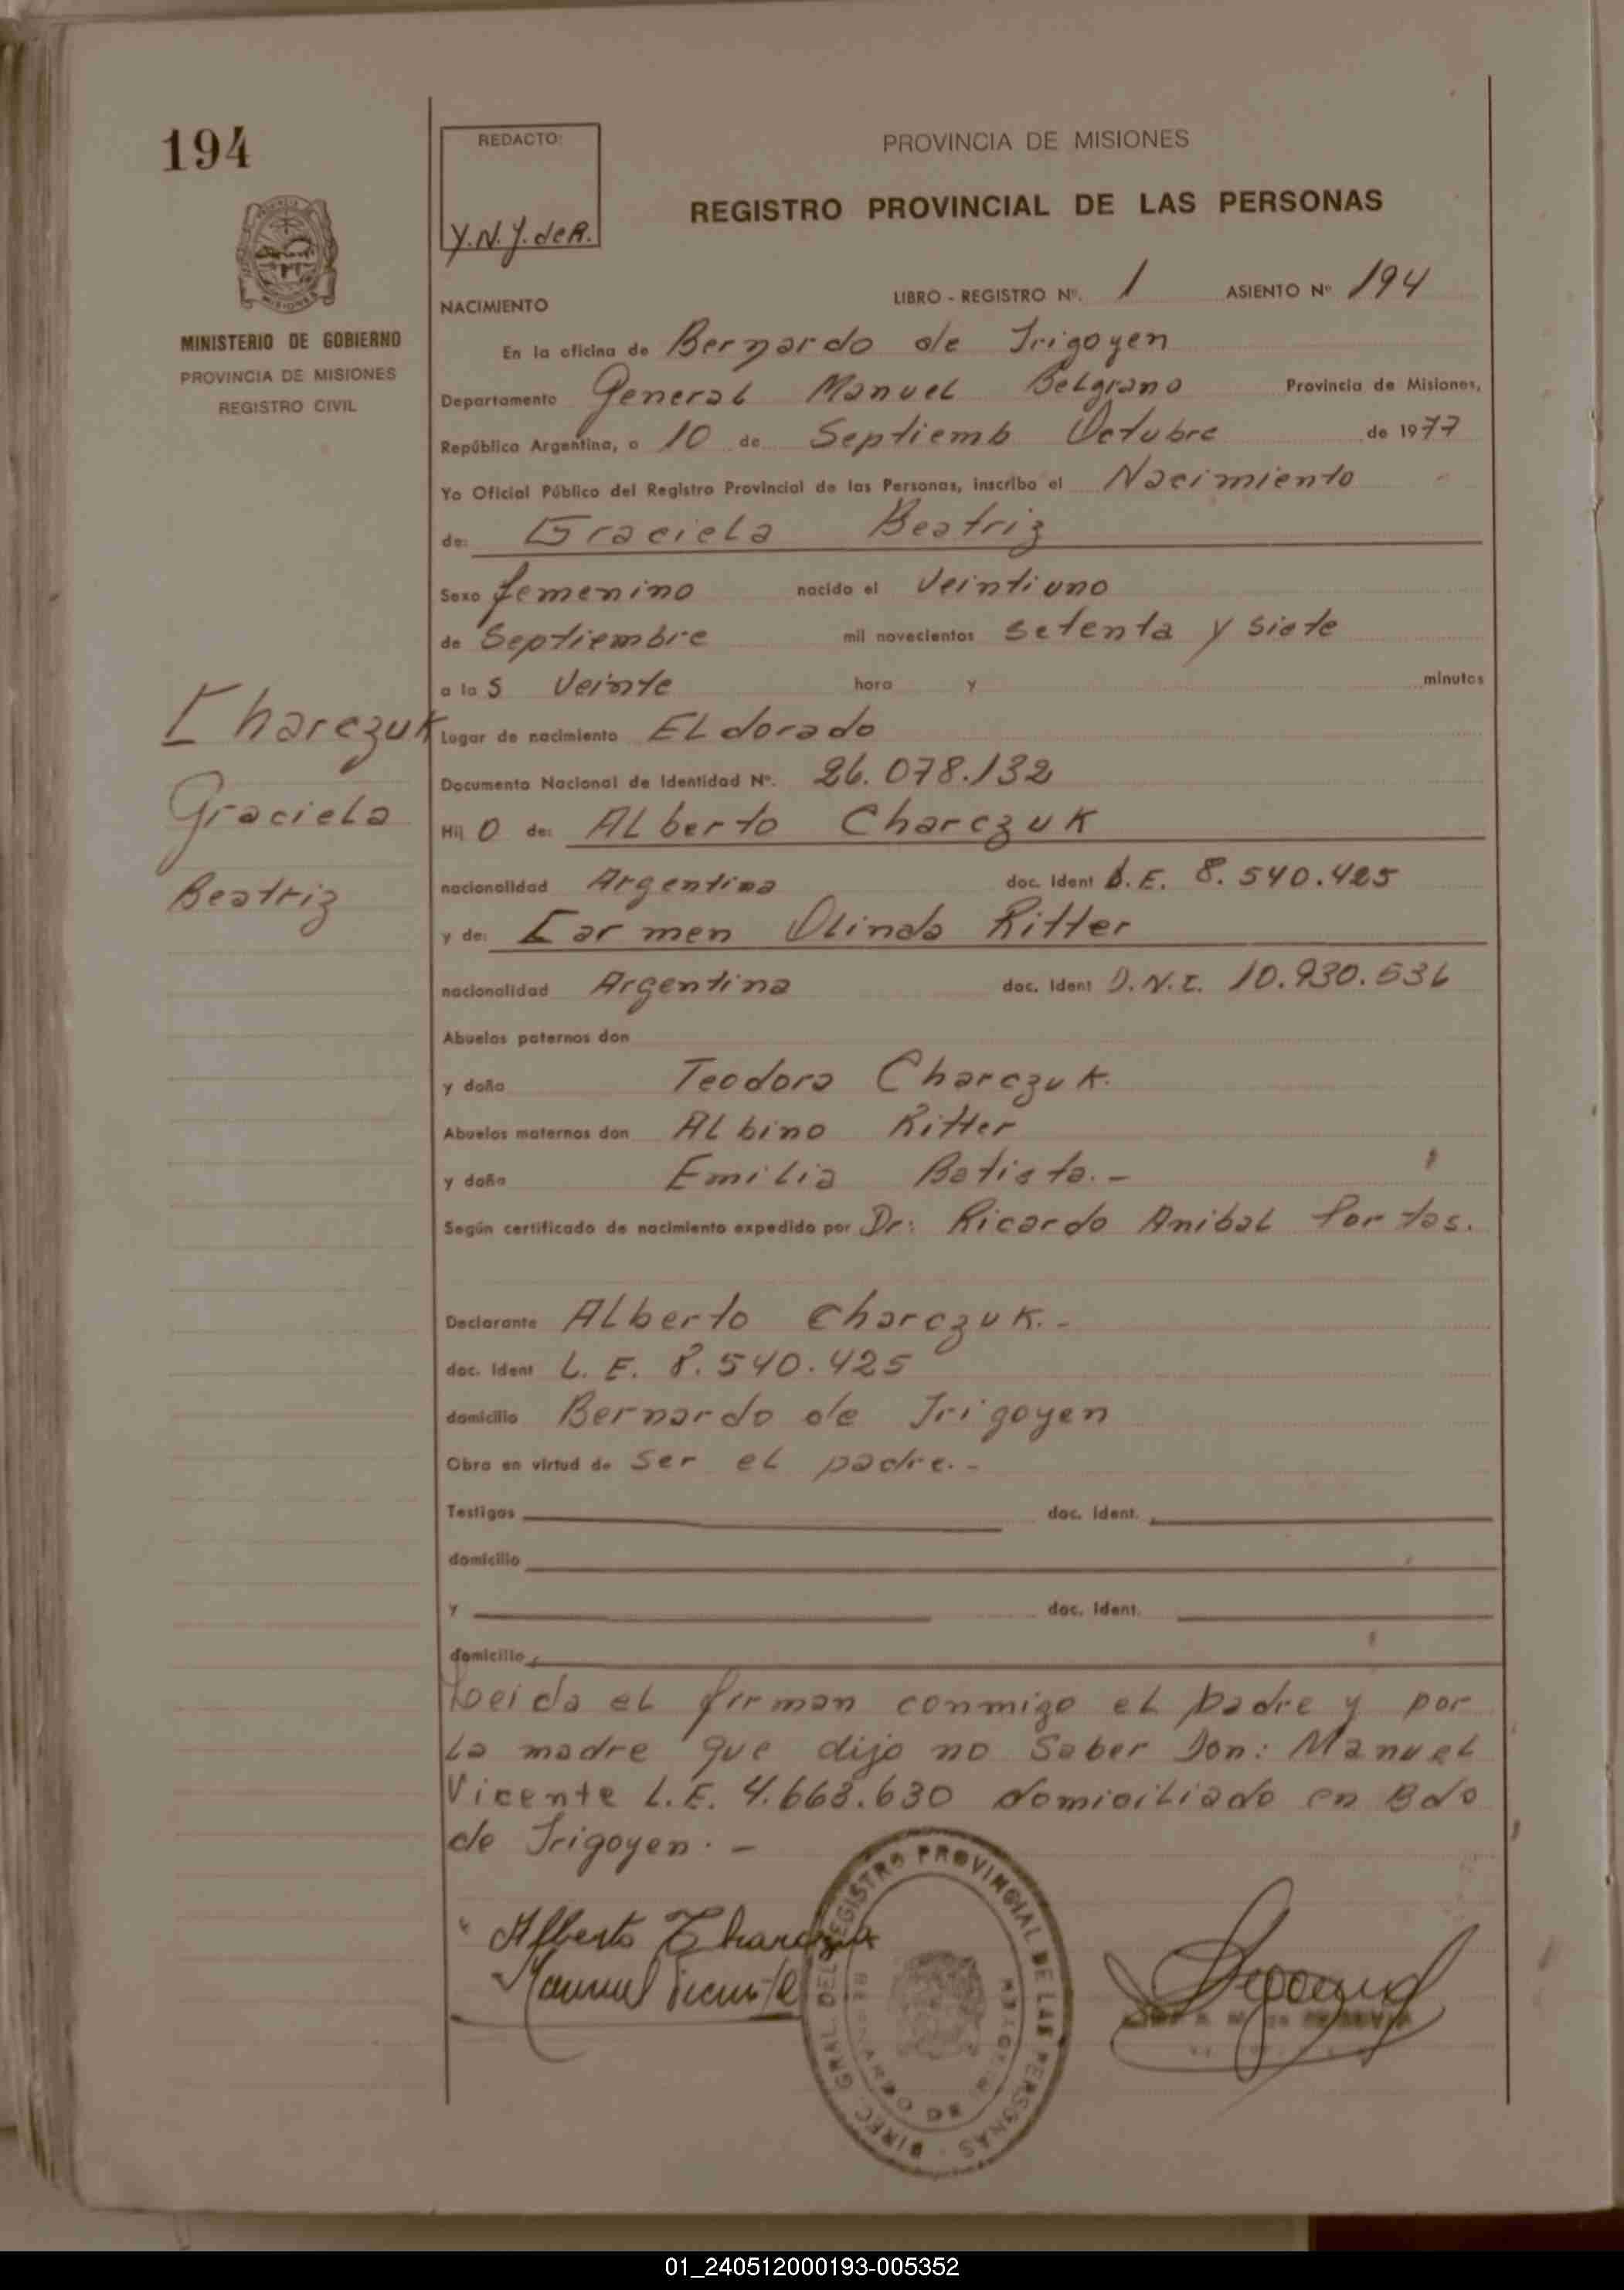 194
REDACTO:
Y.N.J. de R.
PROVINCIA DE MISIONES
REGISTRO PROVINCIAL DE LAS PERSONAS
MINISTERIO DE GOBIERNO
PROVINCIA DE MISIONES
REGISTRO CIVIL
NACIMIENTO LIBRO - REGISTRO Nº. 1 ASIENTO Nº 194
En la oficina de Bernardo de Irigoyen
Departamento General Manuel Belgrano Provincia de Misiones,
República Argentina, a 10 de Septiemb Octubre de 1977
Yo Oficial Público del Registro Provincial de las Personas, inscribo el Nacimiento
de: Graciela Beatriz
Sexo femenino nacido el Veintiuno
de Septiembre mil novecientos setenta y siete
a la s Veinte hora y minutos
Charczuk
Graciela
Beatriz
Lugar de nacimiento Eldorado
Documento Nacional de Identidad Nº. 26.078.132
Hij o de: Alberto Charczuk
nacionalidad Argentina doc. Ident L.E. 8.540.425
y de: Carmen Olinda Ritter
nacionalidad Argentina doc. Ident D.N.I. 10.930.536
Abuelos paternos don
y doña Teodora Charczuk.
Abuelos maternos don Albino Ritter
y doña Emilia Batista.-
Según certificado de nacimiento expedido por Dr: Ricardo Anibal Portas.
Declarante Alberto Charczuk.-
doc. Ident L.E. 8.540.425
domicilio Bernardo de Irigoyen
Obra en virtud de ser el padre.-
Testigos doc. Ident.
domicilio
y doc. Ident.
domicilio
Leida el firman conmigo el padre y por
la madre que dijo no saber Don: Manuel
Vicente L.E. 4.663.630 domiciliado en Bdo
de Irigoyen.-
Alberto Charczuk
Manuel Vicente
DIREC. GRAL. DEL REGISTRO PROVINCIAL DE LAS PERSONAS
01_240512000193-005352